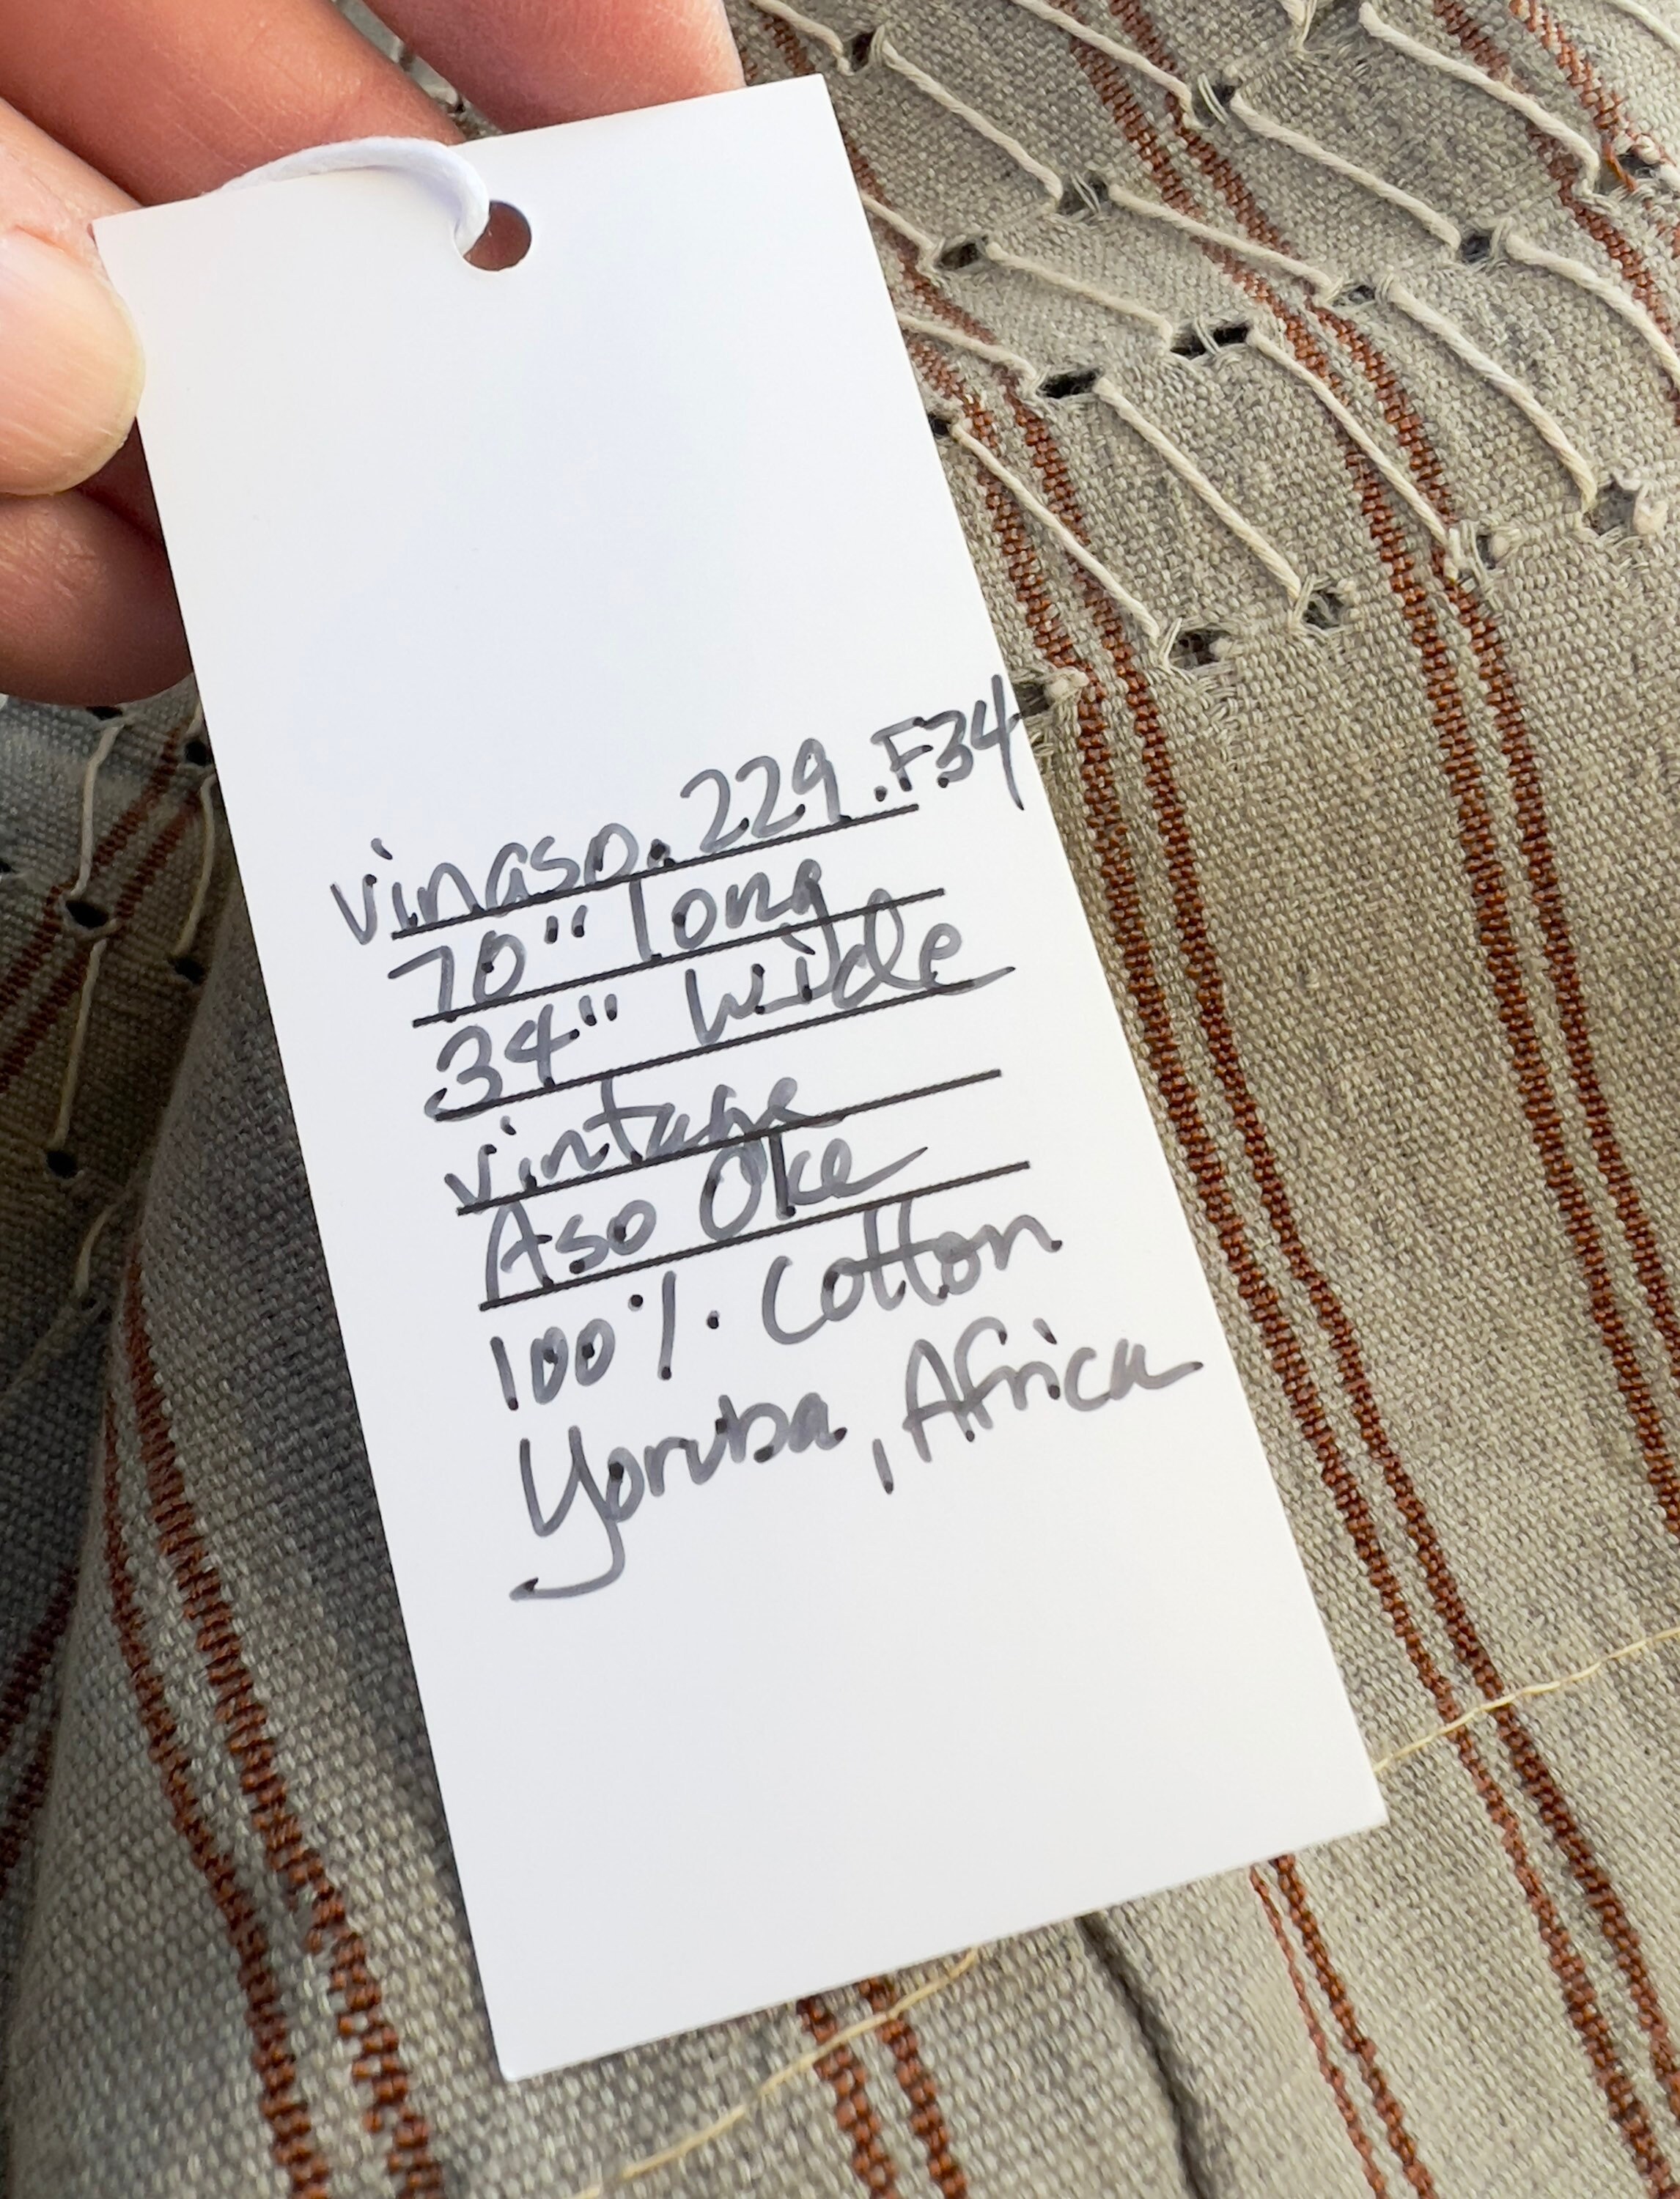 vinaso.229.F34
70" long
34" wide
vintage
Aso Oke
100% Cotton
Yoruba, Africa